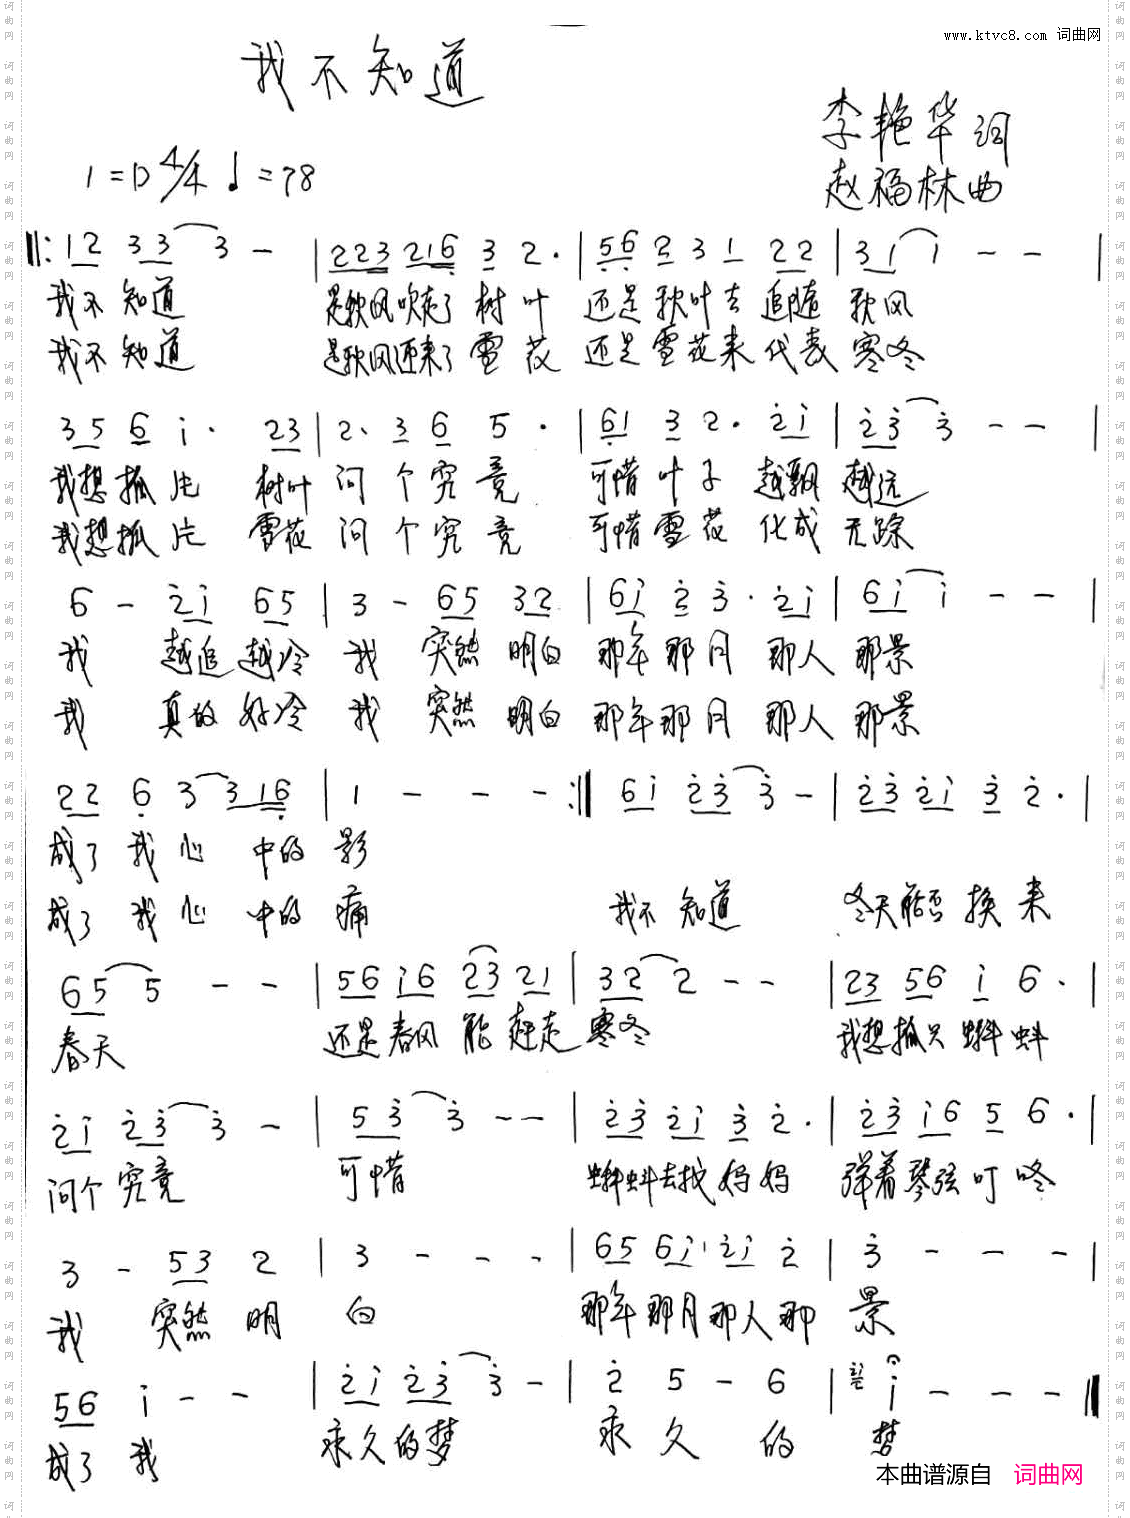 www.ktvc8.com 词曲网
我不知道
李艳华词
赵福林曲
1=D 4/4 ♩=78
‖: 12 33 3 - | 223 216 3 2· | 56 2 3 1 22 | 31 i - - |
我不 知道 是秋风吹走了 树 叶 还是 秋叶去 追随 秋风
我不 知道 是秋风还来了 雪 花 还是 雪花来 代表 寒冬
35 6 i· 23 | 2· 3 6 5· | 61 3 2· 2i | 23 3 - - |
我想抓片 树叶 问 个 究 竟 可惜 叶子 越飘 越远
我想抓片 雪花 问 个 究 竟 可惜 雪花 化成 无踪
6 - 2i 65 | 3 - 65 32 | 6i 2 3· 2i | 6i i - - |
我 越追 越冷 我 突然 明白 那年 那月 那人 那景
我 真的 好冷 我 突然 明白 那年 那月 那人 那景
22 6 3 316 | 1 - - - :‖ 6i 23 3 - | 23 2i 3 2· |
成了 我 心 中的 影
成了 我 心 中的 痛 我不 知道 冬天能否 换 来
65 5 - - | 56 i6 23 21 | 32 2 - - | 23 56 i 6· |
春天 还是春风 能 赶走 寒冬 我想抓只 蝌 蚪
2i 23 3 - | 53 3 - - | 23 2i 3 2· | 23 i6 5 6· |
问个 究竟 可惜 蝌蚪去找 妈 妈 弹着琴弦 叮 咚
3 - 53 2 | 3 - - - | 65 6i· 2i 2 | 3 - - - |
我 突然 明 白 那年 那月 那人 那 景
56 i - - | 2i 23 3 - | 2 5 - 6 | i - - - ‖
成了 我 永久的梦 永 久 的 梦
本曲谱源自 词曲网